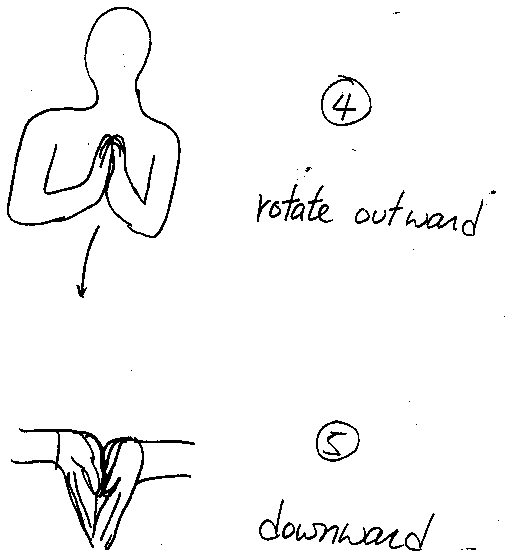 ④
rotate outward
⑤
downward